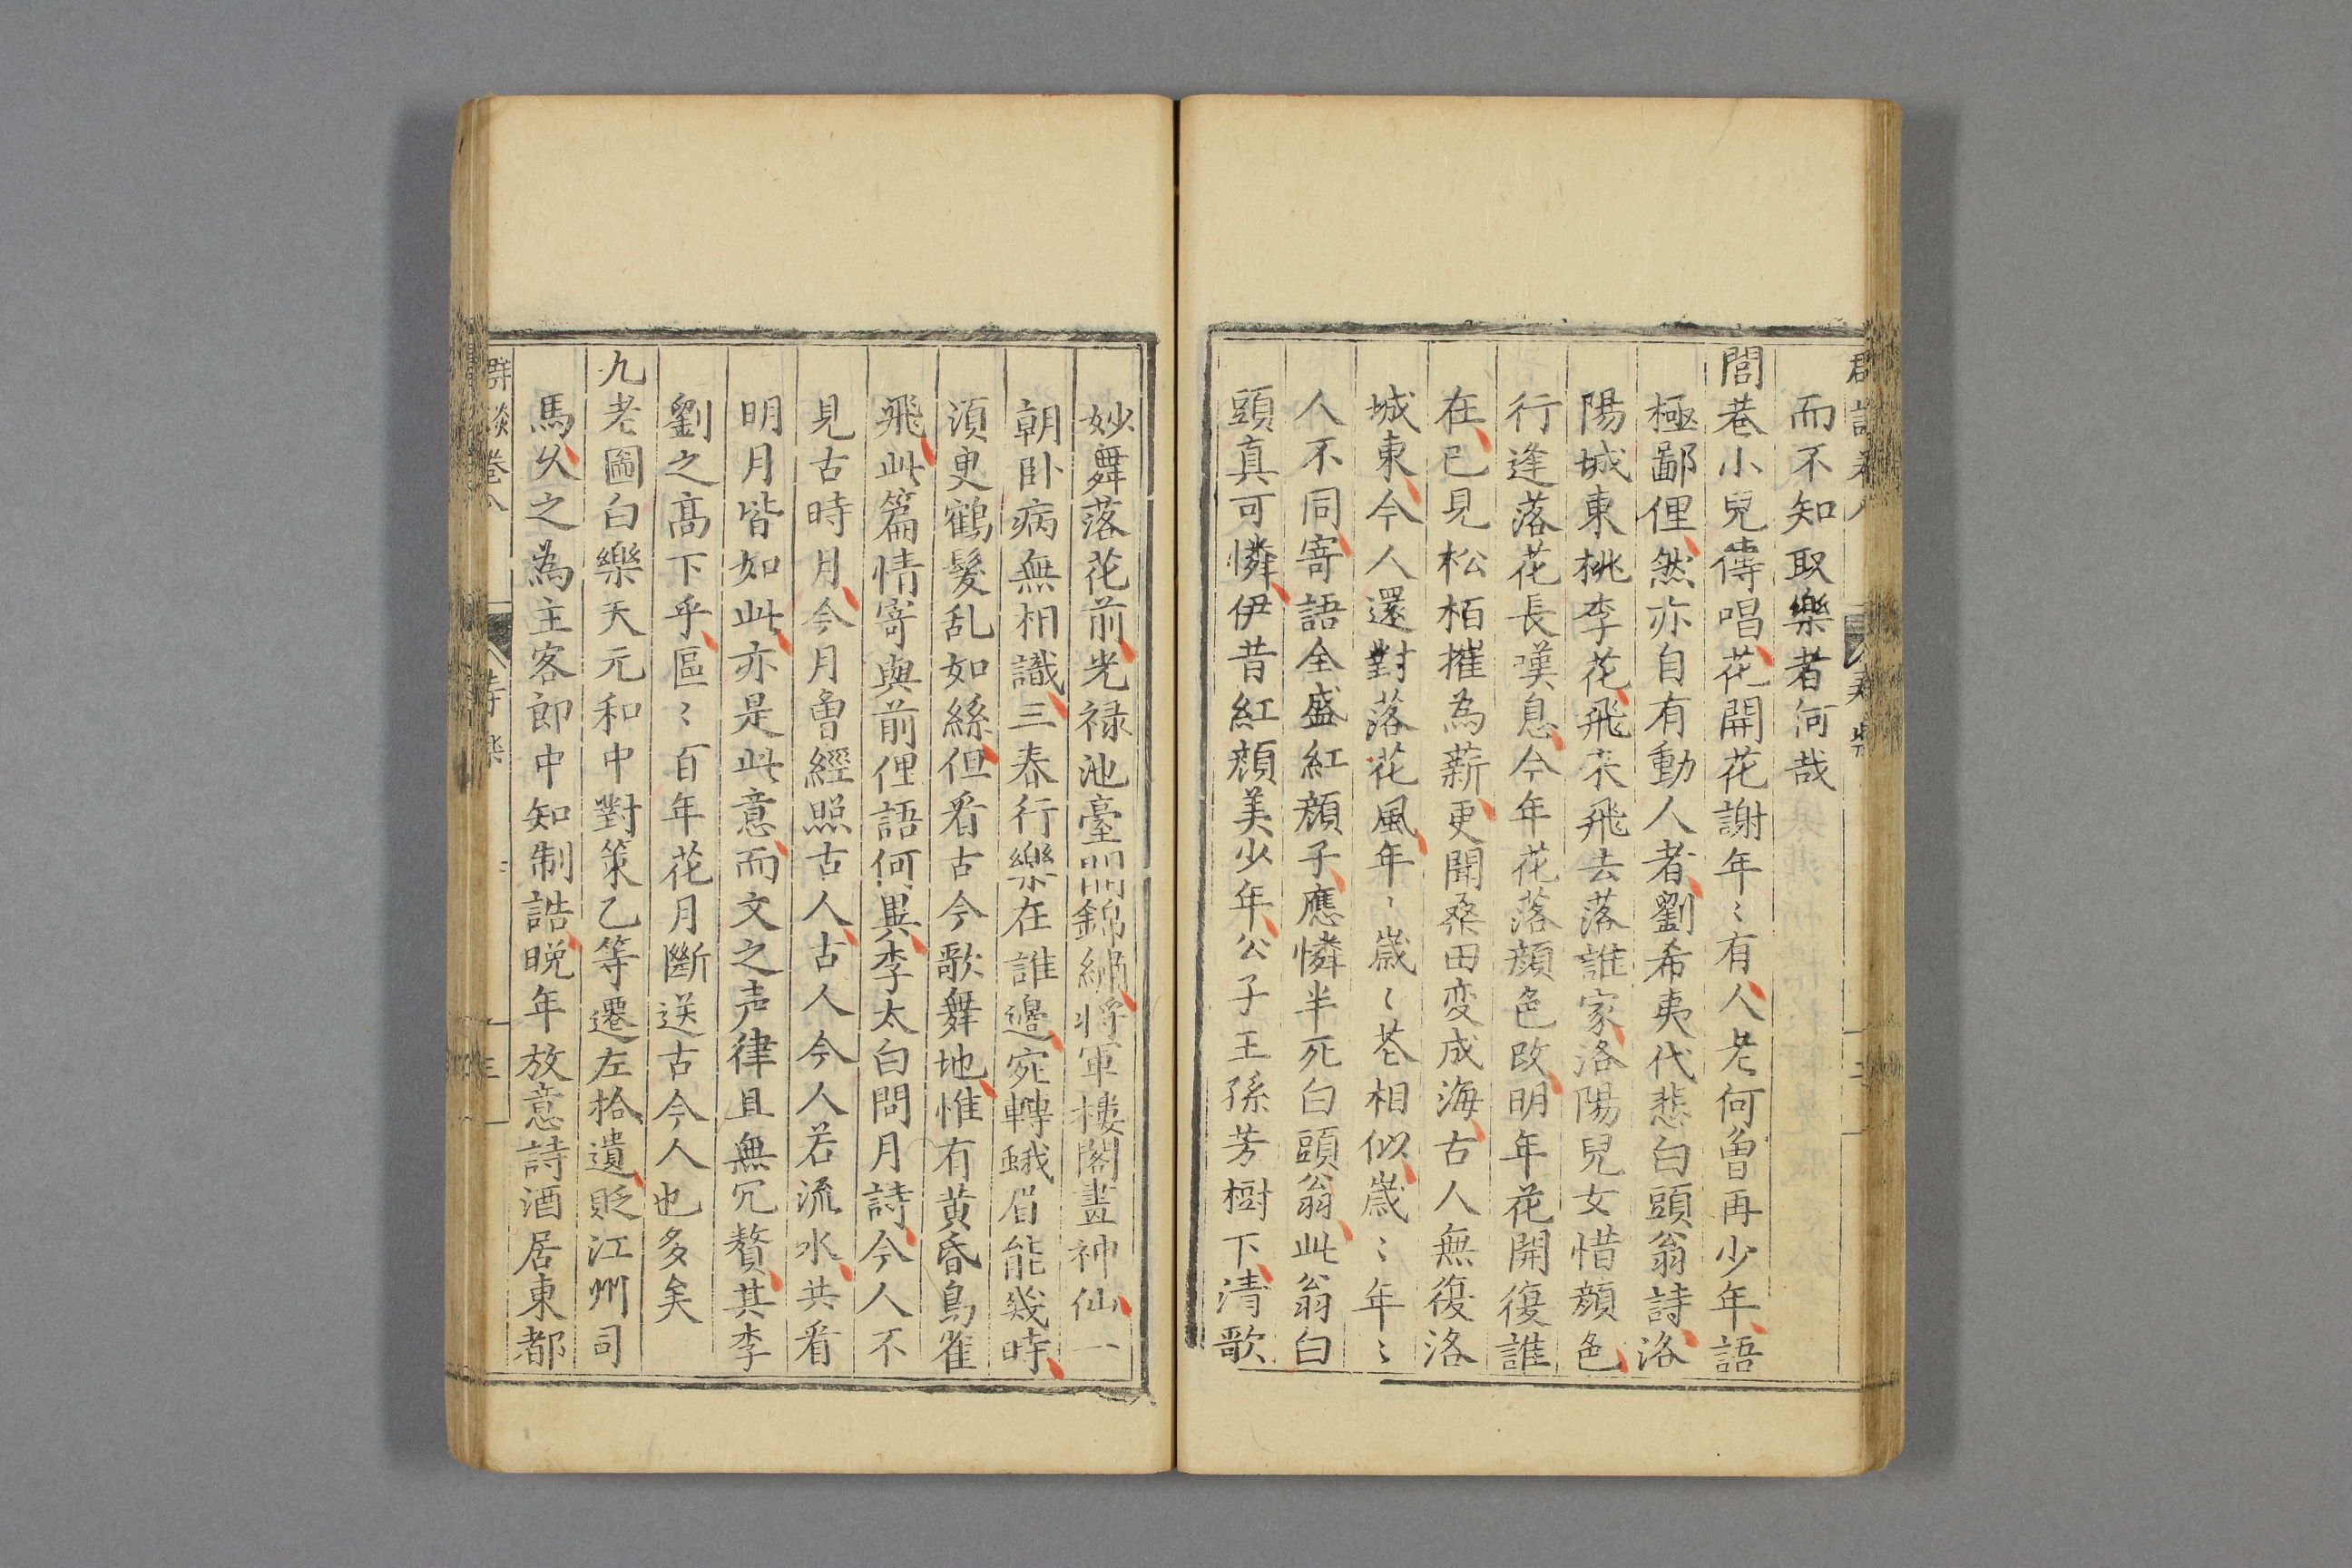 而不知取樂者何哉
閭巷小兒傳唱花開花謝年〻有人老何曽再少年語
極鄙俚然亦自有動人者劉希夷代悲白頭翁詩洛
陽城東桃李花飛来飛去落誰家洛陽兒女惜顔色
行逢落花長嘆息今年花落顔色改明年花開復誰
在已見松栢摧為薪更聞桑田変成海古人無復洛
城東今人還對落花風年〻歲〻花相似歲〻年〻
人不同寄語全盛紅顔子應憐半死白頭翁此翁白
頭真可憐伊昔紅顔美少年公子王孫芳樹下清歌
妙舞落花前光禄池臺開錦繡将軍樓閣畫神仙一
朝卧病無相識三春行樂在誰邊宛轉蛾眉能幾時
湏臾鶴髮乱如絲但看古今歌舞地惟有黄昏鳥雀
飛此篇情寄與前俚語何異李太白問月詩今人不
見古時月今月曽經照古人古人今人若流水共看
明月皆如此亦是此意而文之声律且無冗贅其李
劉之髙下乎區〻百年花月斷送古今人也多矣
九老圖白樂天元和中對策乙等遷左拾遺貶江州司
馬久之為主客郎中知制誥晚年放意詩酒居東都
群談卷八